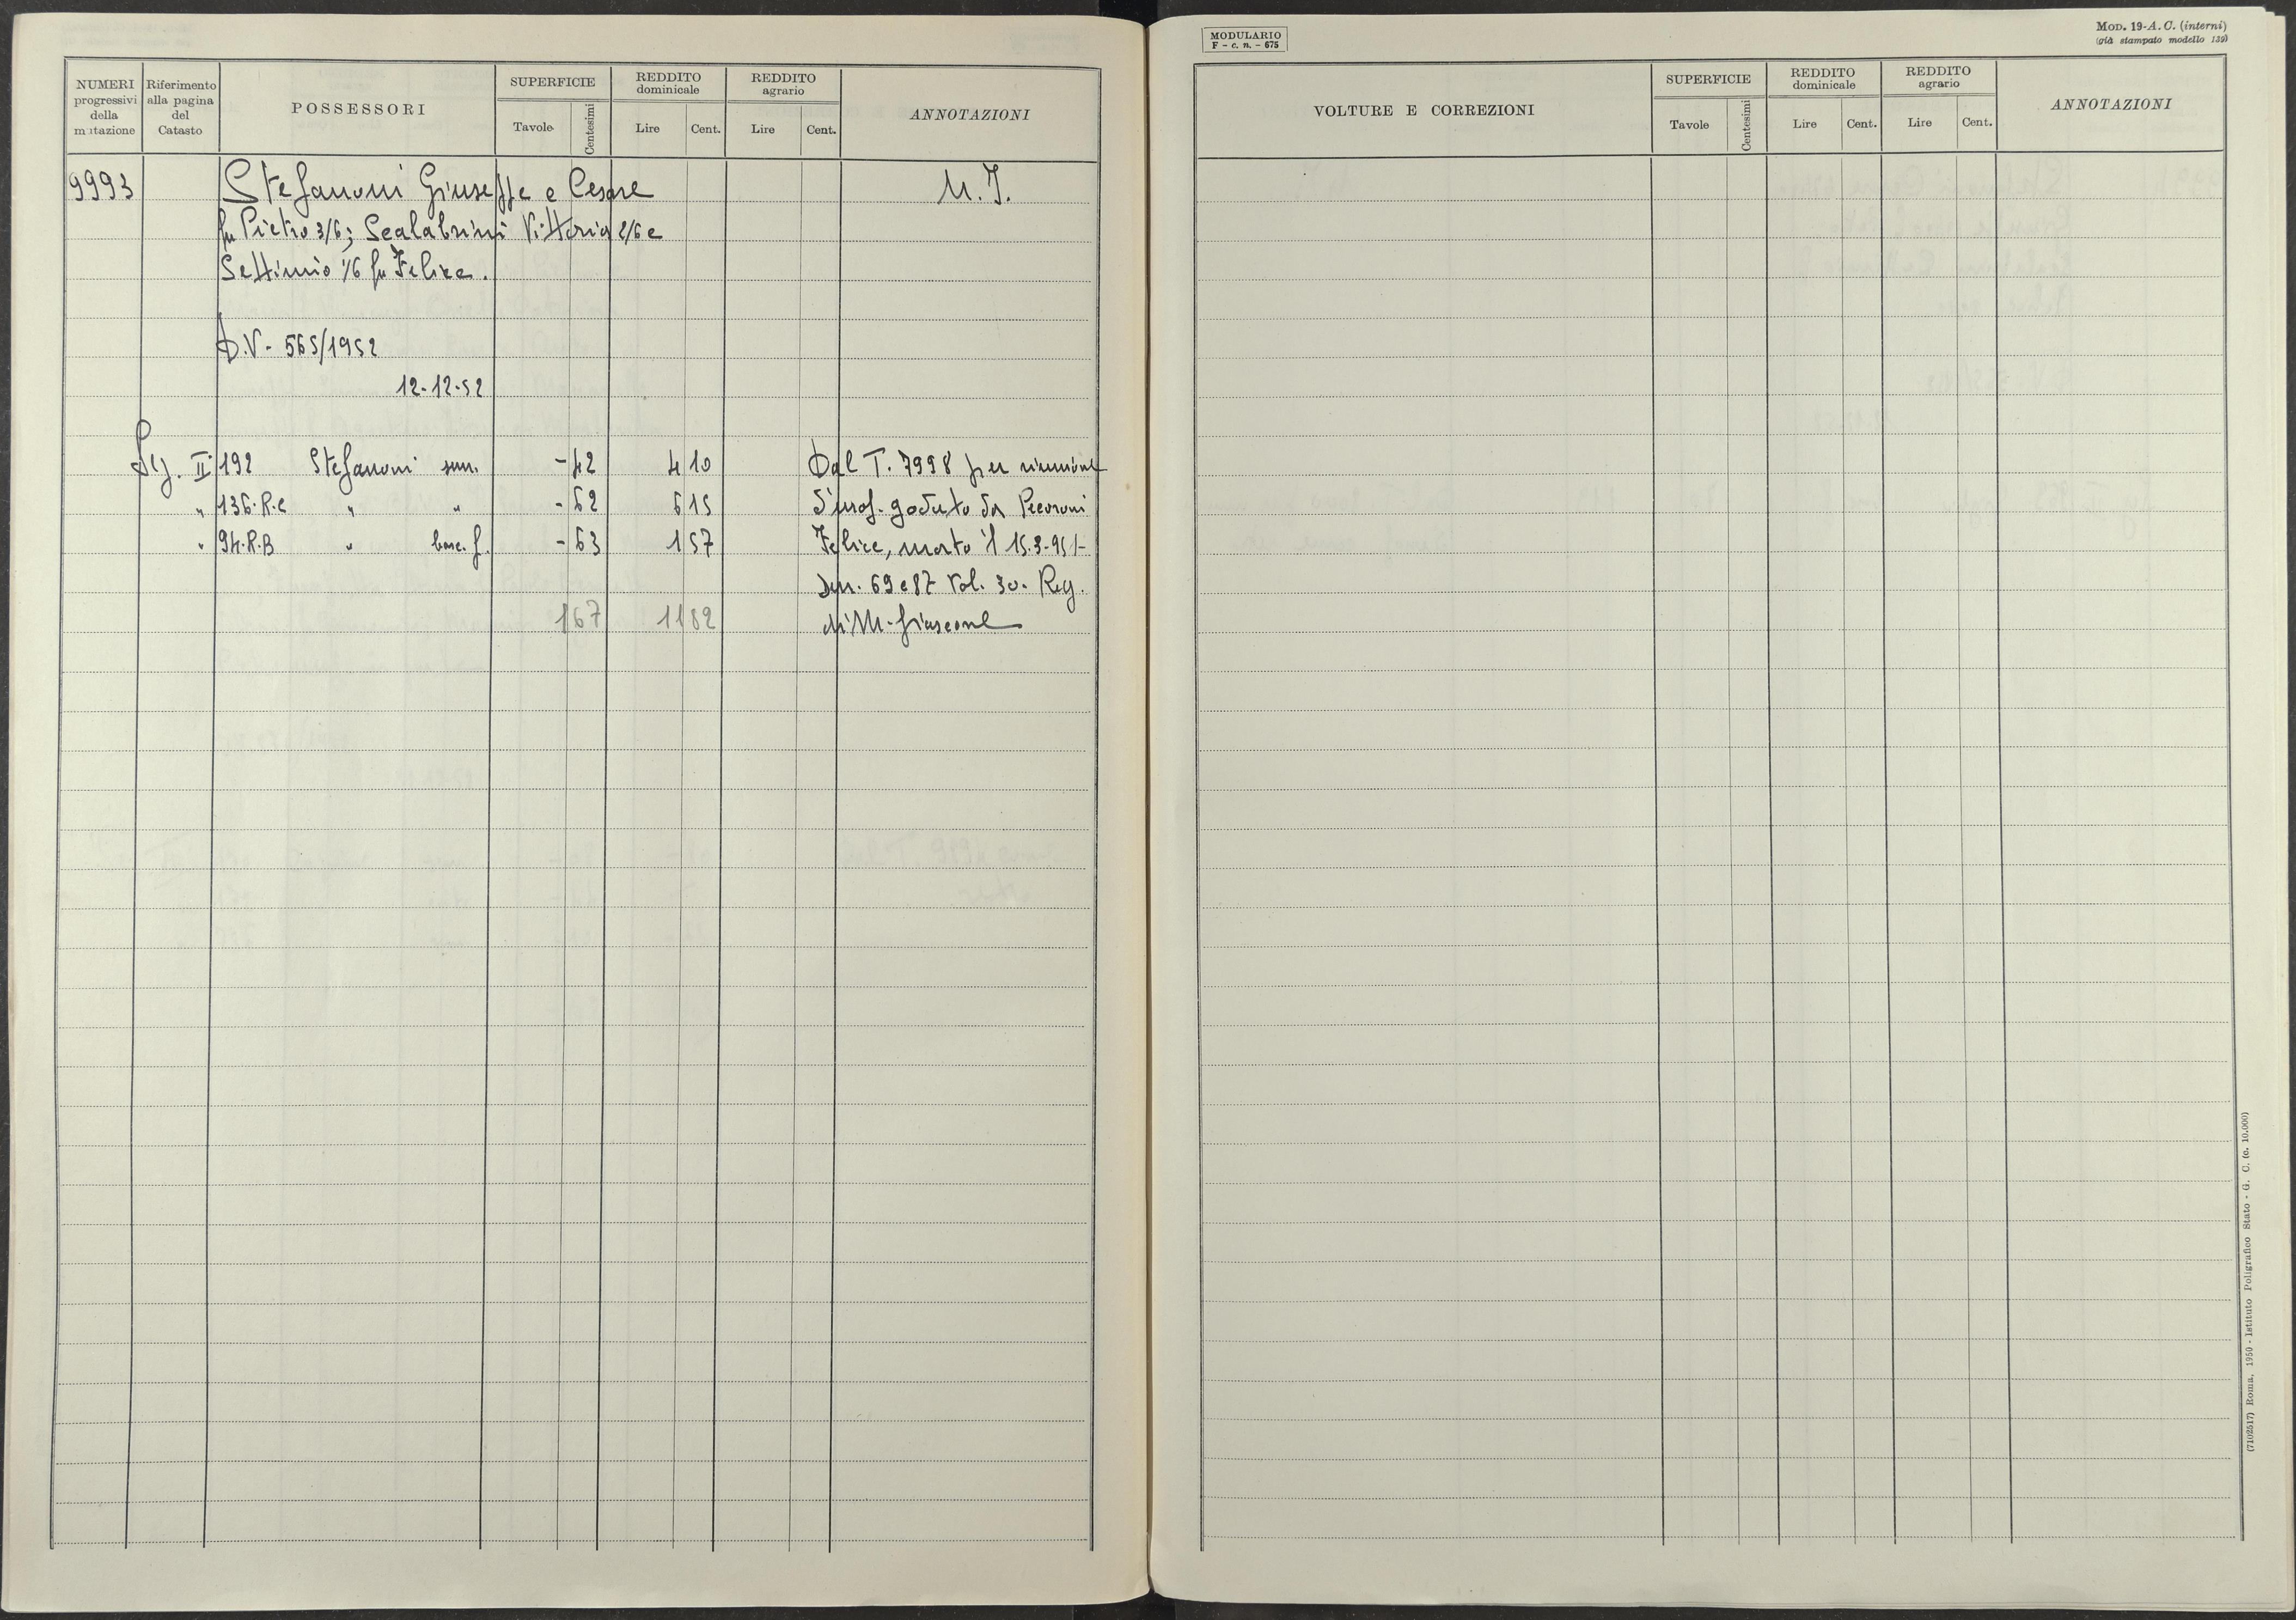 NUMERI progressivi della mutazione
Riferimento alla pagina del Catasto
POSSESSORI
SUPERFICIE
Tavole
Centesimi
REDDITO dominicale
Lire
Cent.
REDDITO agrario
Lire
Cent.
ANNOTAZIONI
9993 Stefanoni Giuseppe e Cesare
fu Pietro 3/6; Scalabrini Vittoria 2/6 e
Settimio 1/6 fu Felice.
M. I.
D.V. - 565/1952
12-12-52
II 192 Stefanoni sem. -42 4 10 Dal T. 7998 per riunione
" 136.R.C " " -62 6 15 d'usof. goduto da
" 94.R.B " bosc. f. -63 1 57 Felice, morto il 15.3-951-
Den. 69 e 87 Vol. 30. Reg.
1 67 11 82 di M. fiascone
MODULARIO
F - c. n. - 675
MOD. 19-A. C. (interni)
(già stampato modello 139)
VOLTURE E CORREZIONI
SUPERFICIE
Tavole
Centesimi
REDDITO dominicale
Lire
Cent.
REDDITO agrario
Lire
Cent.
ANNOTAZIONI
(7102517) Roma, 1950 - Istituto Poligrafico Stato - G. C. (c. 10.000)